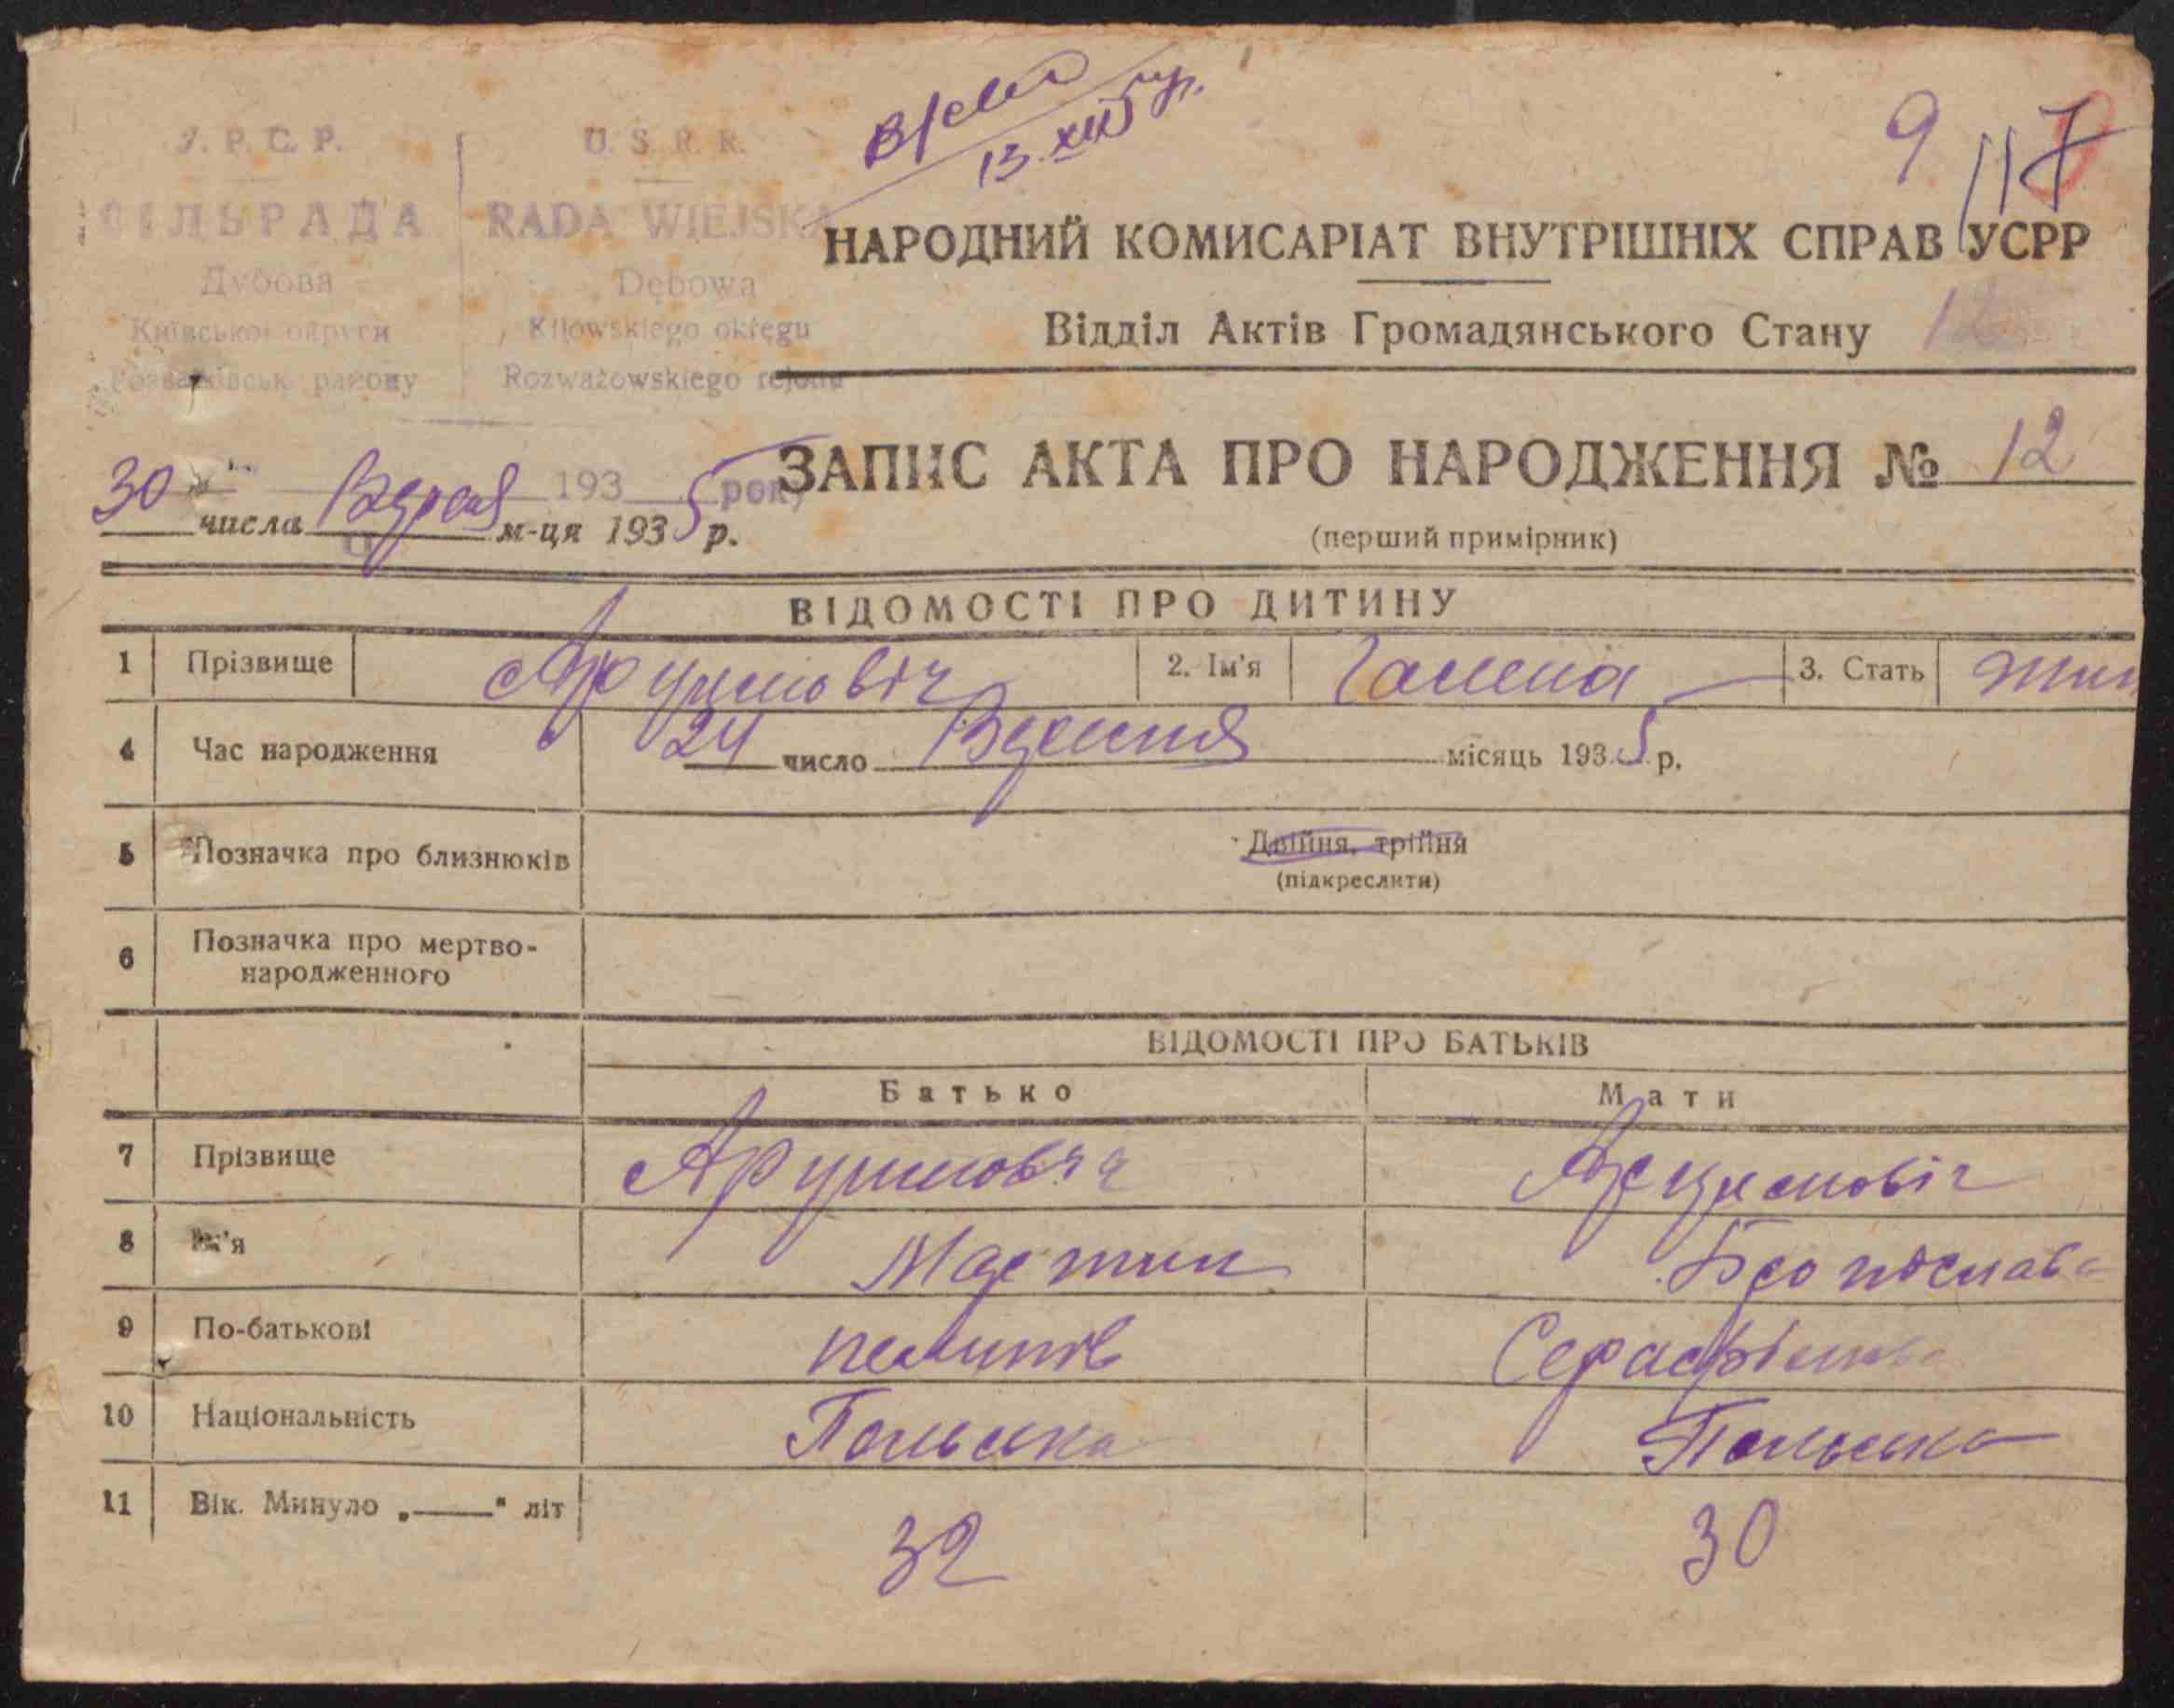 У. Р. С. Р.
U. S. R. R.
СІЛЬРАДА
RADA WIEJSKA
Дубова
Dębowa
Київської округи
Kijowskiego okręgu
Розважівськ району
Rozważowskiego rejonu
13. XII
9
117
НАРОДНИЙ КОМИСАРІАТ ВНУТРІШНІХ СПРАВ УСРР
Відділ Актів Громадянського Стану 12
ЗАПИС АКТА ПРО НАРОДЖЕННЯ № 12
(перший примірник)
193 року
30 числа Вересня м-ця 1935 р.
ВІДОМОСТІ ПРО ДИТИНУ
1 Прізвище Арумовіч 2. Ім'я Галена 3. Стать жин
4 Час народження 24 число Вересня місяць 1935 р.
5 Позначка про близнюків Двійня, трійня
(підкреслити)
6 Позначка про мертво-
народженного
ВІДОМОСТІ ПРО БАТЬКІВ
Батько Мати
7 Прізвище
8 Ім'я Мартин Броніслава
9 По-батькові Серафімівна
10 Національність Польська Польська
11 Вік. Минуло „ — " літ 32 30